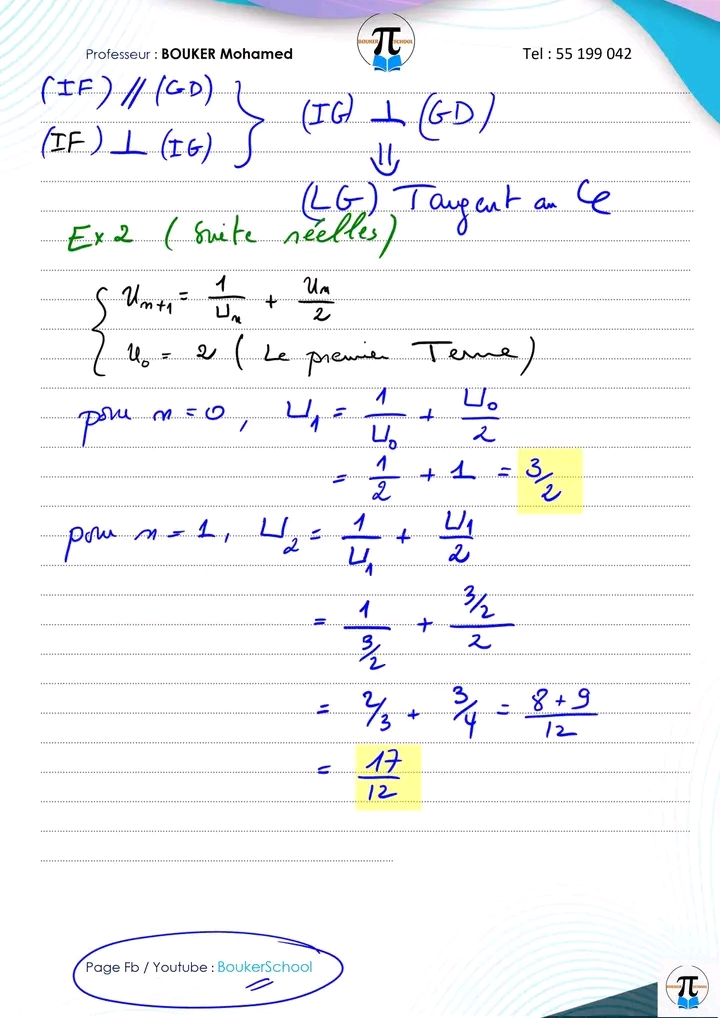 Professeur : BOUKER Mohamed
BOUKER π SCHOOL
Tel : 55 199 042
(IF) // (GD)
(IF) ⊥ (IG)
} (IG) ⊥ (GD)
⇓
(LG) Tangent au 𝒞
Ex 2 ( Suite réelles)
{ Un+1 = 1/Un + Un/2
U0 = 2 ( Le premier Terme)
pour n = 0, U1 = 1/U0 + U0/2
= 1/2 + 1 = 3/2
pour n = 1, U2 = 1/U1 + U1/2
= 1/(3/2) + (3/2)/2
= 2/3 + 3/4 = (8+9)/12
= 17/12
Page Fb / Youtube : BoukerSchool
π